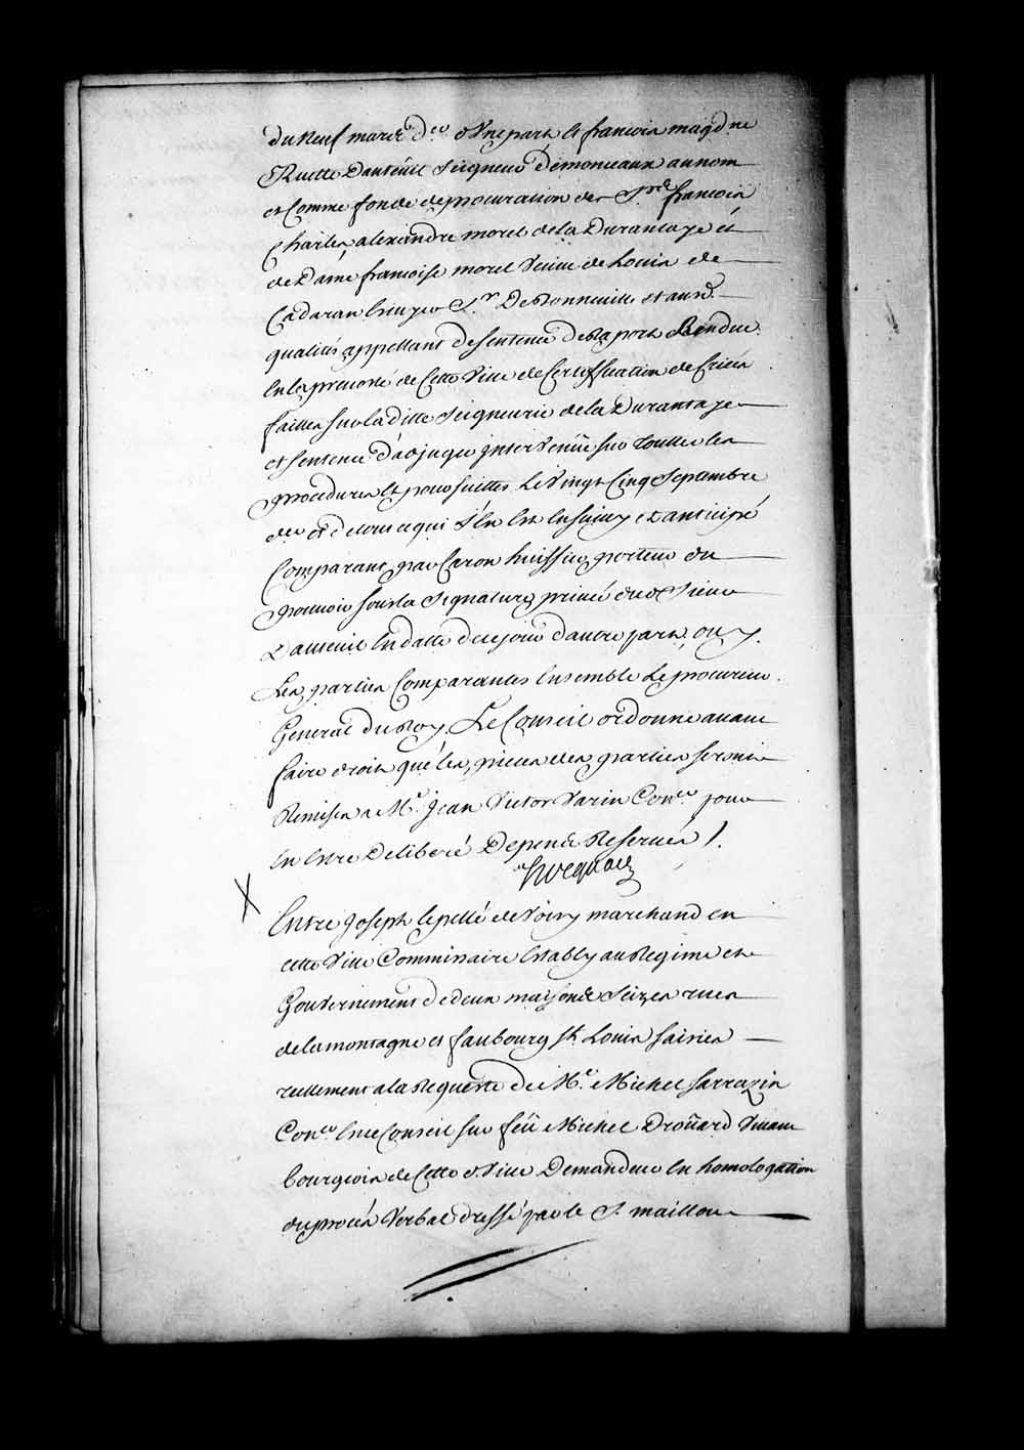 du neuf mars d.er d'une part et francois magd.ne
Ruette Dauteüil Seigneur de monceaux au nom
et Comme fondé de procuration de S.r francois
Charles alexandre morel de la Durantaye et
de Dame francoise morel Veuve de Louis de
Cadaran Ecuyer S.r De Bonneuille et ausd.
qualités appellant de sentence de la part Rendue
En la prevosté de Cette Ville de Certiffication de Criées
faittes sur la ditte Seigneurie de la Durantaye
et sentence d'adjugé intervenüe sur touttes les
procedures et poursuittes le vingt Cinq Septembre
der et de tout ce qui s'en Est Ensuivy et anticipé
Comparant par Caron huissier porteur du
pouvoir sous la signature privée dud Sieur
Dauteuil En datte de ce jour d'autre part, ouy
Les parties Comparantes Ensemble Le procureur
General du Roy Le Conseil ordonne avant
faire droit que les pieces des parties seront
Remises a M.e jean Victor Varin Con.er pour
En Estre Deliberé Depens Reservés /.
hocquart
X
Entre Joseph lepellé de Voisy marchand en
cette Ville Commissaire Estably au Regime et
Gouvernement de deux maisons Seizes rues
de la montagne et faubourg St. Louis saisies
reellement a la Requeste de M.e Michel sarrazin
Con.er En ce Conseil sur feü Michel Droüard Vivant
bourgeois de Cette d. Ville Demandeur En homologation
du procés Verbal dressé par le S. maillou